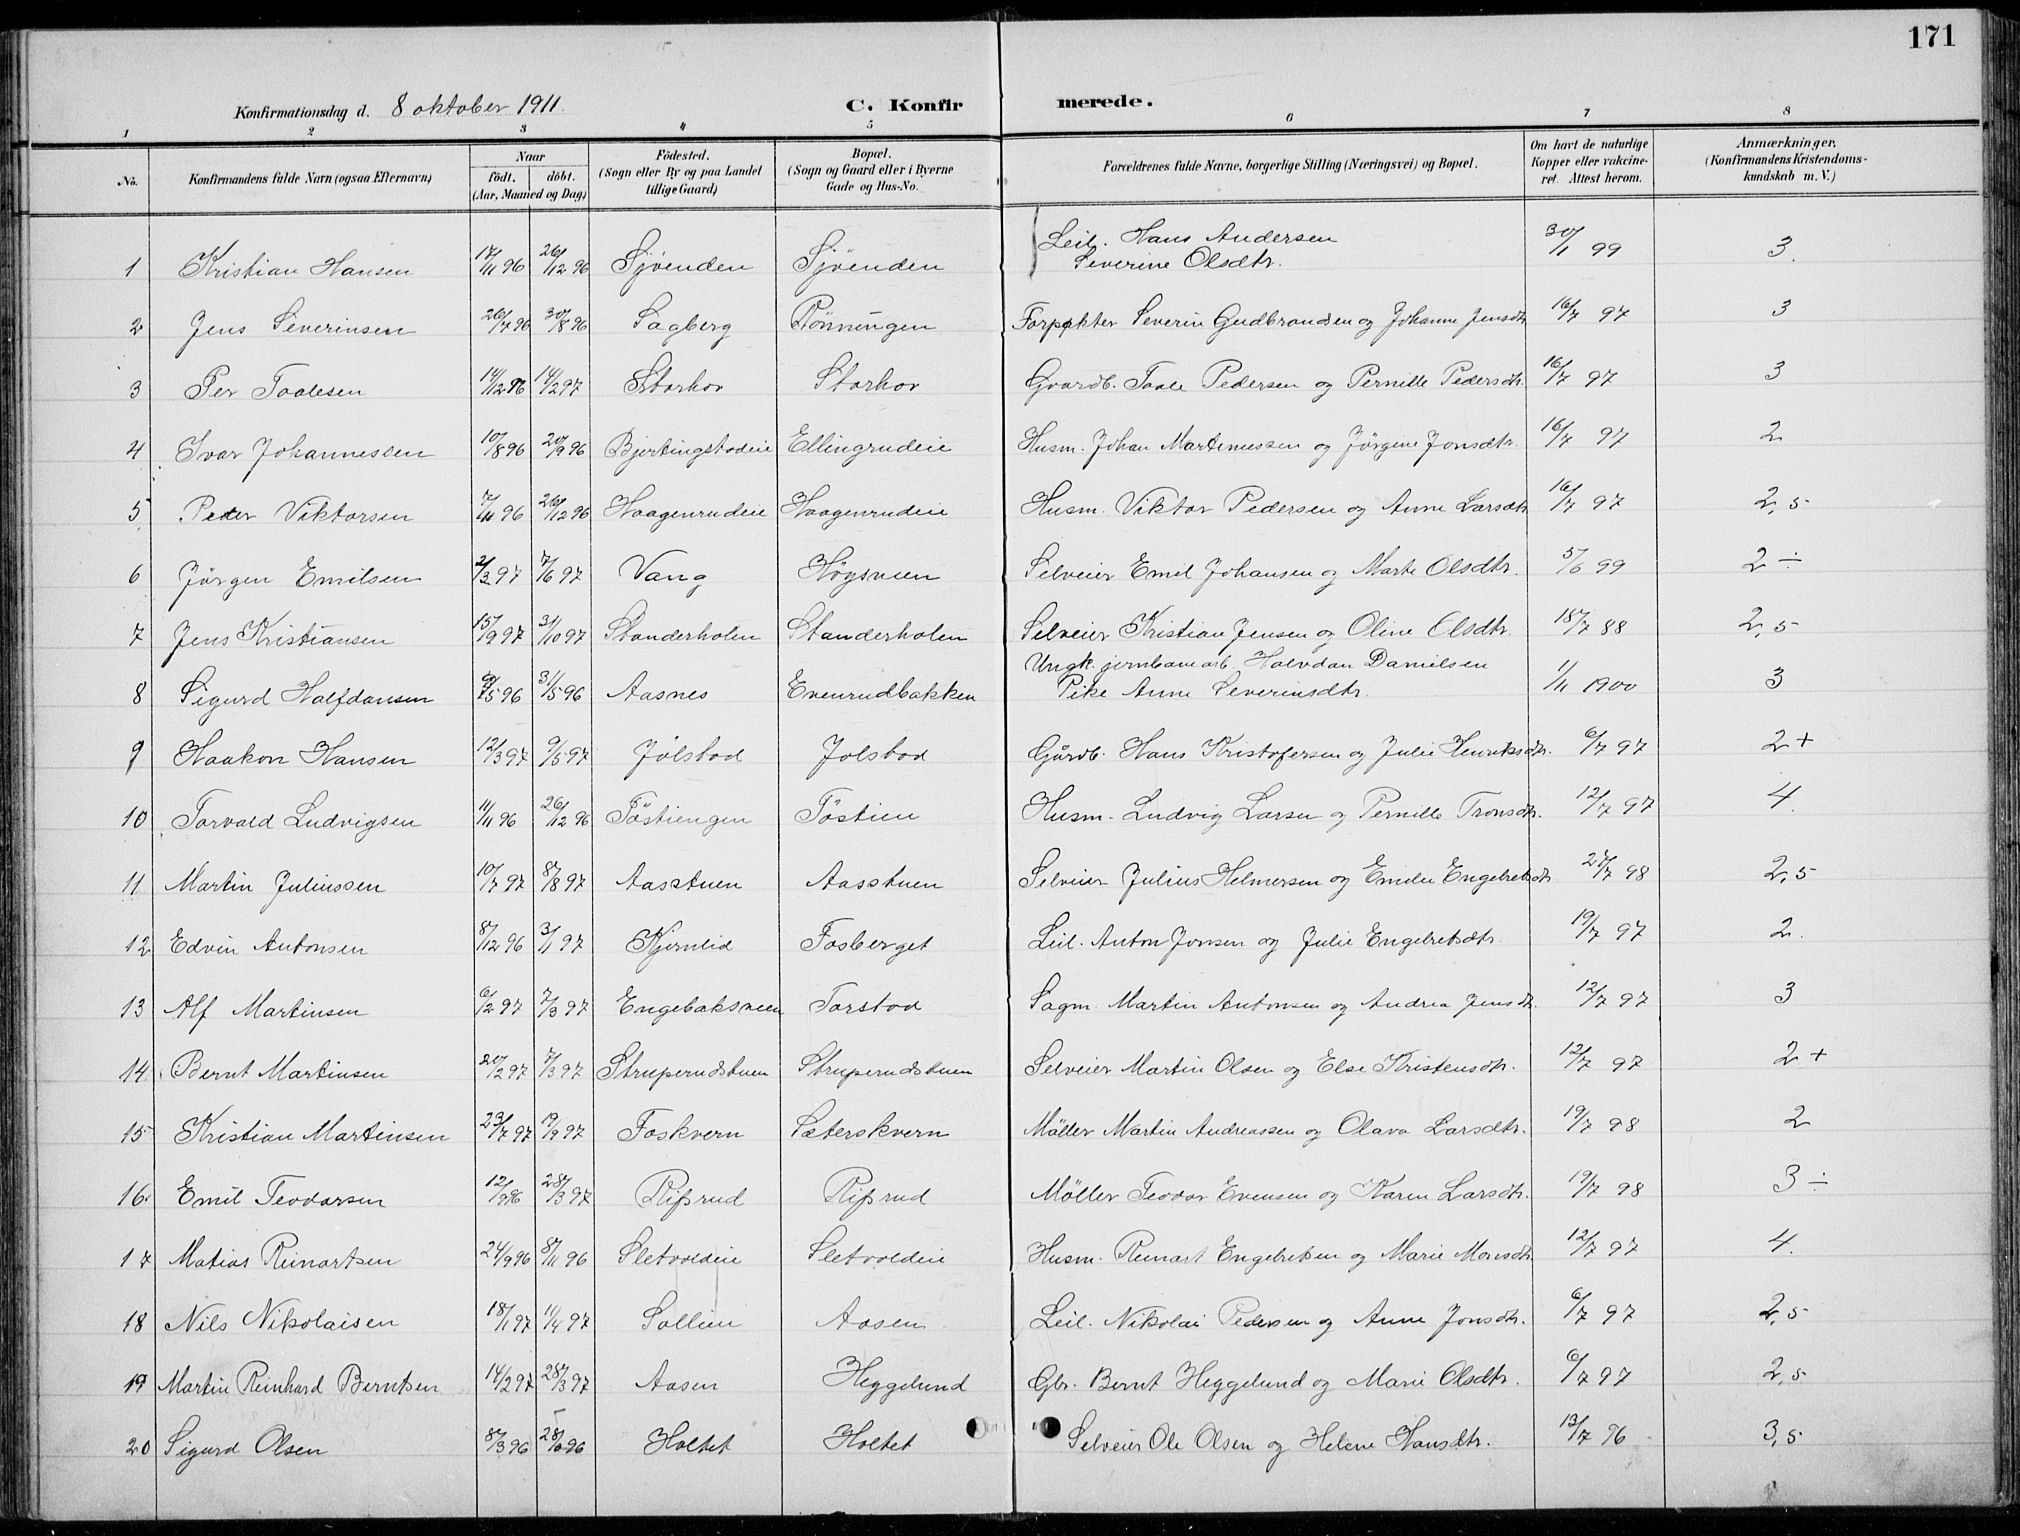 171
Konfirmationsdag d. 8 oktober 1911. C. Konfirmerede.
1 2 3 4 5 6 7 8
No. Konfirmandens fulde Navn (ogsaa Efternavn) Naar födt. döbt. (Aar, Maaned og Dag) Födested. (Sogn eller By og paa Landet tillige Gaard) Bopæl. (Sogn og Gaard eller i Byerne Gade og Hus-No. Forældrenes fulde Navne, borgerlige Stilling (Næringsvei) og Bopæl. Om havt de naturlige Kopper eller vakcineret. Attest herom. Anmærkninger. (Konfirmandens Kristendomskundskab m. V.)
1 Kristian Hansen 17/11 96 26/12 96 Sjöenden Sjöenden Leil. Hans Andersen Severine Olsdtr. 30/1 99 3.
2 Jens Severinsen 26/7 96 30/8 96 Sagberg Rönningen Forpakter Severin Gudbrandsen og Johanne Jensdtr 16/7 97 3
3 Per Taalesen 14/12 96 14/2 97 Storhov Storhov Gaardb. Taale Pedersen og Pernille Pedersdtr. 16/7 97 3
4 Ivar Johannessen 10/8 96 20/9 96 Bjertingstadeie Ellingrudeie Husm. Johan Martinussen og Jörgine Jonsdtr. 16/7 97 2
5 Peder Viktorsen 7/11 96 26/12 96 Haagenrudeie Haagenrudeie Husm. Viktor Pedersen og Anne Larsdtr 16/7 97 2,5
6 Jörgen Emilsen 2/3 97 7/6 97 Vang Högsveen Selveier Emil Johansen og Marte Olsdtr. 5/6 99 2 ÷
7 Jens Kristiansen 15/9 97 31/10 97 Standerholen Standerholen Selveier Kristian Jensen og Oline Olsdtr. 18/7 88 2,5
8 Sigurd Halfdansen 96 31/5 96 Aasnes Evenrudbakken Ungk. jernbanearb. Halvdan Danielsen Pike Anne Severinsdtr. 1/11 1900 3
9 Haakon Hansen 12/3 97 9/5 97 Jölstad Jolstad Gårdb. Hans Kristofersen og Julie Henriksdtr. 6/7 97 2+
10 Torvald Ludvigsen 11/11 96 26/12 96 Töstiengen Töstien Husm. Ludvig Larsen og Pernille Tronsdtr. 12/7 97 4.
11 Martin Juliussen 10/7 97 8/8 97 Aasstuen Aasstuen Selveier Julius Helmersen og Emilie Engebretsdtr. 98 2,5
12 Edvin Antonsen 8/12 96 3/1 97 Kjernlid Fosberget Leil. Anton Jonsen og Julie Engebretsdtr. 19/7 97 2.
13 Alf Martinsen 6/2 97 7/3 97 Engebaksveen Torstad Sagm. Martin Antonsen og Andrea Jensdtr. 12/7 97 3
14. Bernt Martinsen 20/2 97 7/3 97 Struperudstuen Struperudstuen Selveier Martin Olsen og Else Kristensdtr. 12/7 97 2+
15 Kristian Martinsen 23/7 97 19/9 97 Foskvern Sæterskvern Möller Martin Andreassen og Olava Larsdtr. 19/7 98 2
16. Emil Teodorsen 12/9 96 28/3 97 Risrud Risrud Möller Teodor Evensen og Karen Larsdtr. 19/7 98 3 ÷
17 Matias Reinartsen 24/9 96 8/11 96 Sletvoldeie Sletvoldeie Husm. Reinart Engebretsen og Marie Monsdtr. 12/7 97 4.
18 Nils Nikolaisen 18/1 97 11/4 97 Sollien Aasen Leil. Nikolai Pedersen og Anne Jonsdtr. 6/7 97 2,5
19 Martin Reinhard Berntsen 14/2 97 28/3 97 Aasen Heggelund Gbr. Bernt Heggelund og Marie Olsdtr. 6/7 97 2,5
20 Sigurd Olsen 8/3 96 96 Holtet Holtet Selveier Ole Olsen og Helene Hansdtr. 13/7 96 3,5